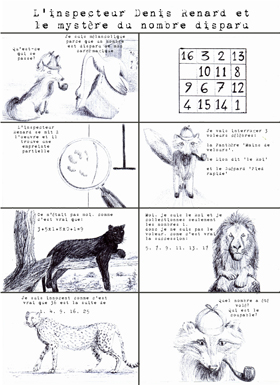 L'inspecteur Denis Renard et
le mystère du nombre disparu
qu'est-ce
qui se
passe?
Je suis mélancolique
parce que un nombre
est disparu de mon
carré magique
16 3 2 13
10 11 8
9 6 7 12
4 15 14 1
L'inspecteur
Renard se mit à
l'oeuvre et il
trouve une
empreinte
partielle
Je vais interroger 3
voleurs:
la Panthère "Mains de
velours",
le lion dit "le
et le Guépard "Pied
rapide"
Ce n'était pas moi, comme
c'est vrai que:
3+5x1+7x0-1=9
Moi, je suis le roi et je
collectionne seulement
les nombres
donc je ne suis pas le
voleur, comme c'est vrai
la succession:
5, 7, 9, 11, 13, 17
Je suis innocent comme c'est
vrai que 36 est la suite de
1, 4, 9, 16, 25
Quel nombre a été
volé?
qui est le
coupable?